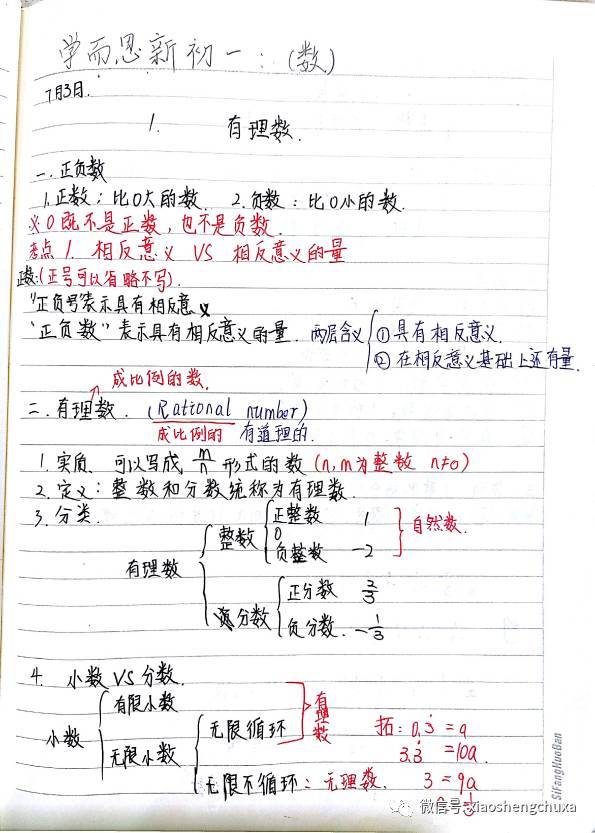 学而思新初一：（数）
7月3日.
1. 有理数.
一.正负数
1.正数：比0大的数. 2.负数：比0小的数.
※0既不是正数，也不是负数.
考点1. 相反意义 VS 相反意义的量
正数:(正号可以省略不写).
"正负号"表示具有相反意义
"正负数"表示具有相反意义的量. 两层含义 ①具有相反意义.
②在相反意义基础上还有量.
成比例的数.
二.有理数. (Rational number)
成比例的 有道理的.
1.实质. 可以写成 m/n 形式的数 (n,m为整数 n≠0)
2.定义：整数和分数统称为有理数.
3.分类.
有理数
整数
正整数 1
0
负整数 -2
自然数.
分数
正分数 2/3
负分数. -1/3
4. 小数 VS 分数.
小数
有限小数
无限小数
无限循环
有理数
无限不循环：无理数.
拓: 0.3̇ = a
3.3̇ = 10a
3 = 9a
1/3
微信号:xiaoshengchuxa
SiFangHuoBan